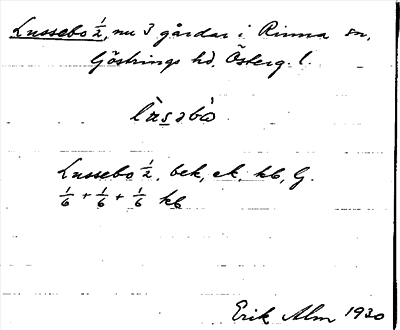 Lussebo ½, nu 3 gårdar i Rinna sn,
Göstrings hd, Österg. l.
lùsəbò
Lussebo ½, bek, ek, kb, G.
1/6 + 1/6 + 1/6 kb
Erik Alm 1930